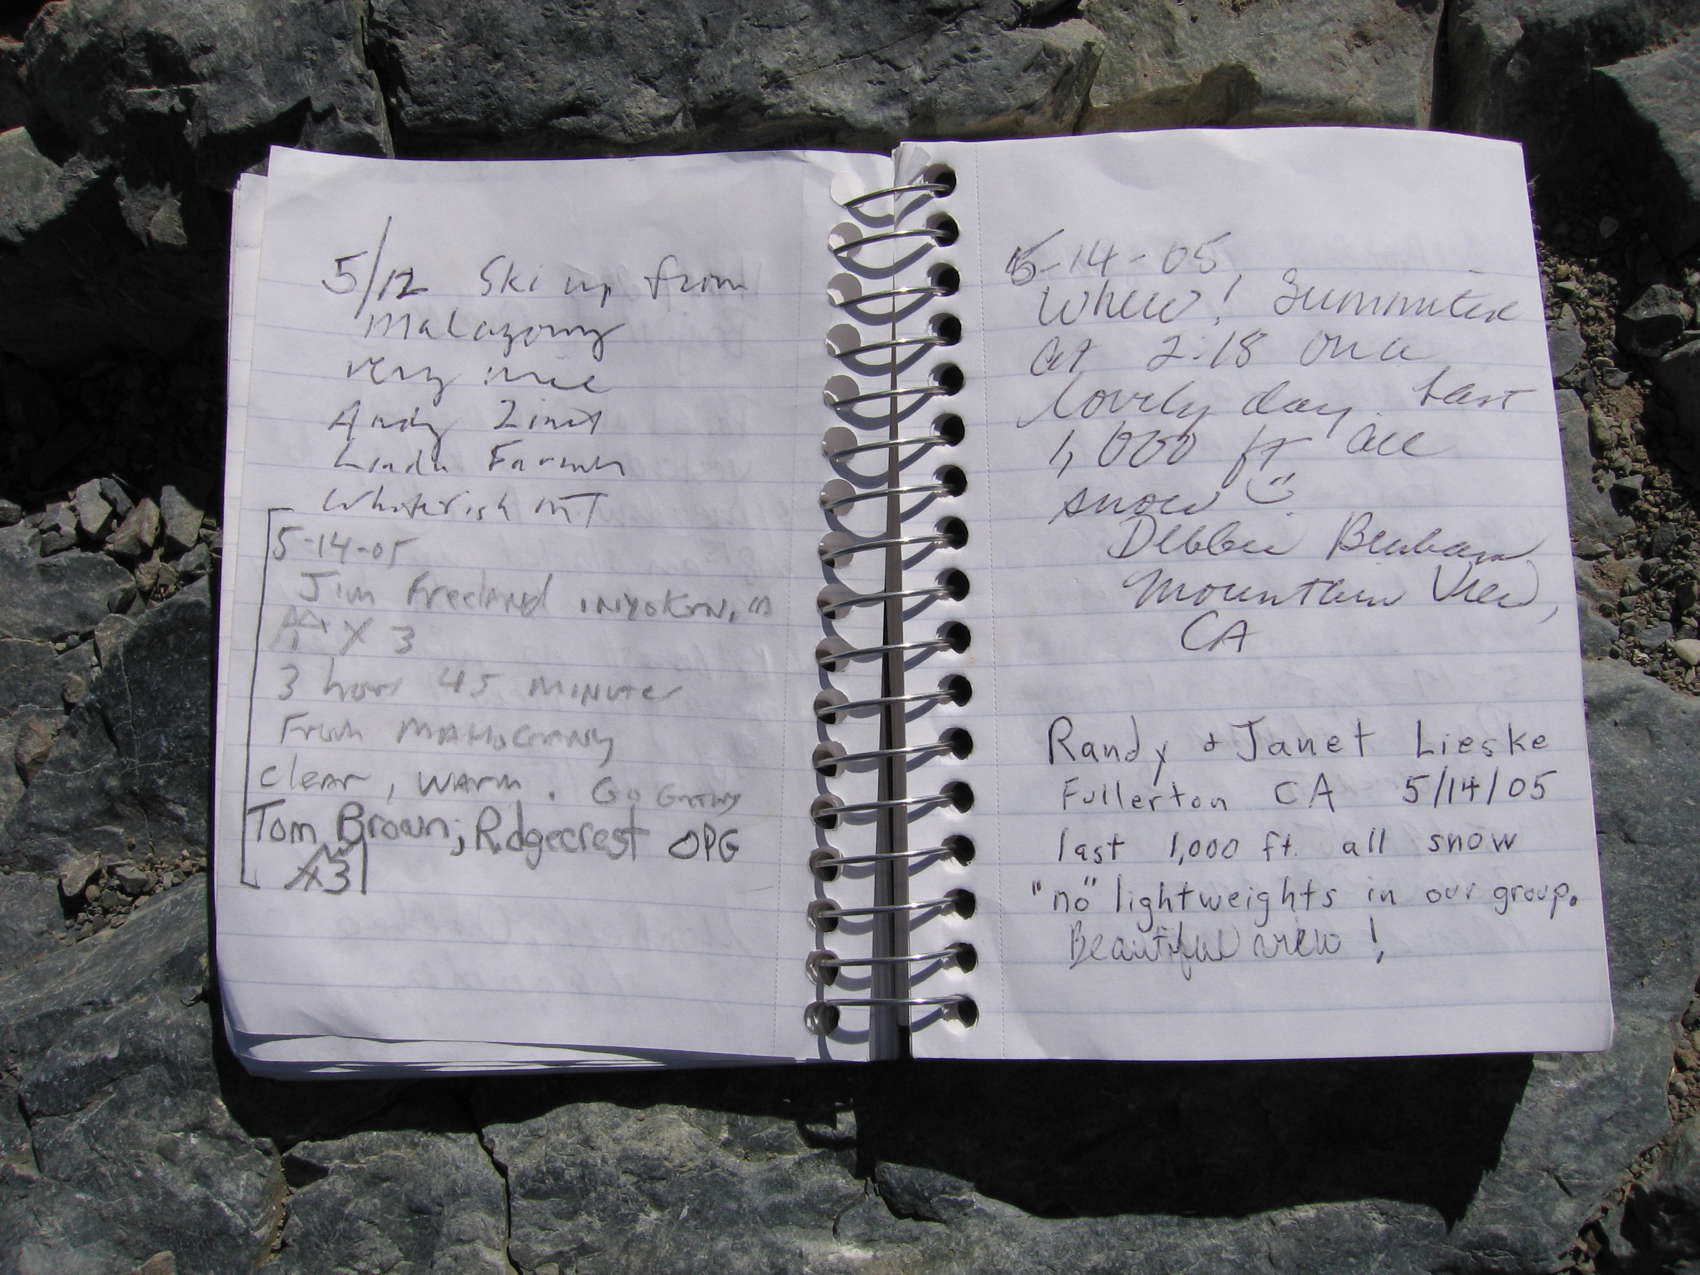 5/12 Ski up from
Mahagony
very nice
Andy Zimet
Linda
Whitefish MT
5-14-05
Jim Freeland INYOKERN, CA
X 3
3 hour 45 minutes
From MAHOGANY
Clear, warm. Go
Tom Brown; Ridgecrest OPG
3
5-14-05
Whew! Summited
at 2:18 on a
lovely day. Last
1,000 ft all
snow ☺.
Debbie Benham
Mountain View,
CA
Randy + Janet Lieske
Fullerton CA 5/14/05
last 1,000 ft. all snow
"no" lightweights in our group.
Beautiful view!